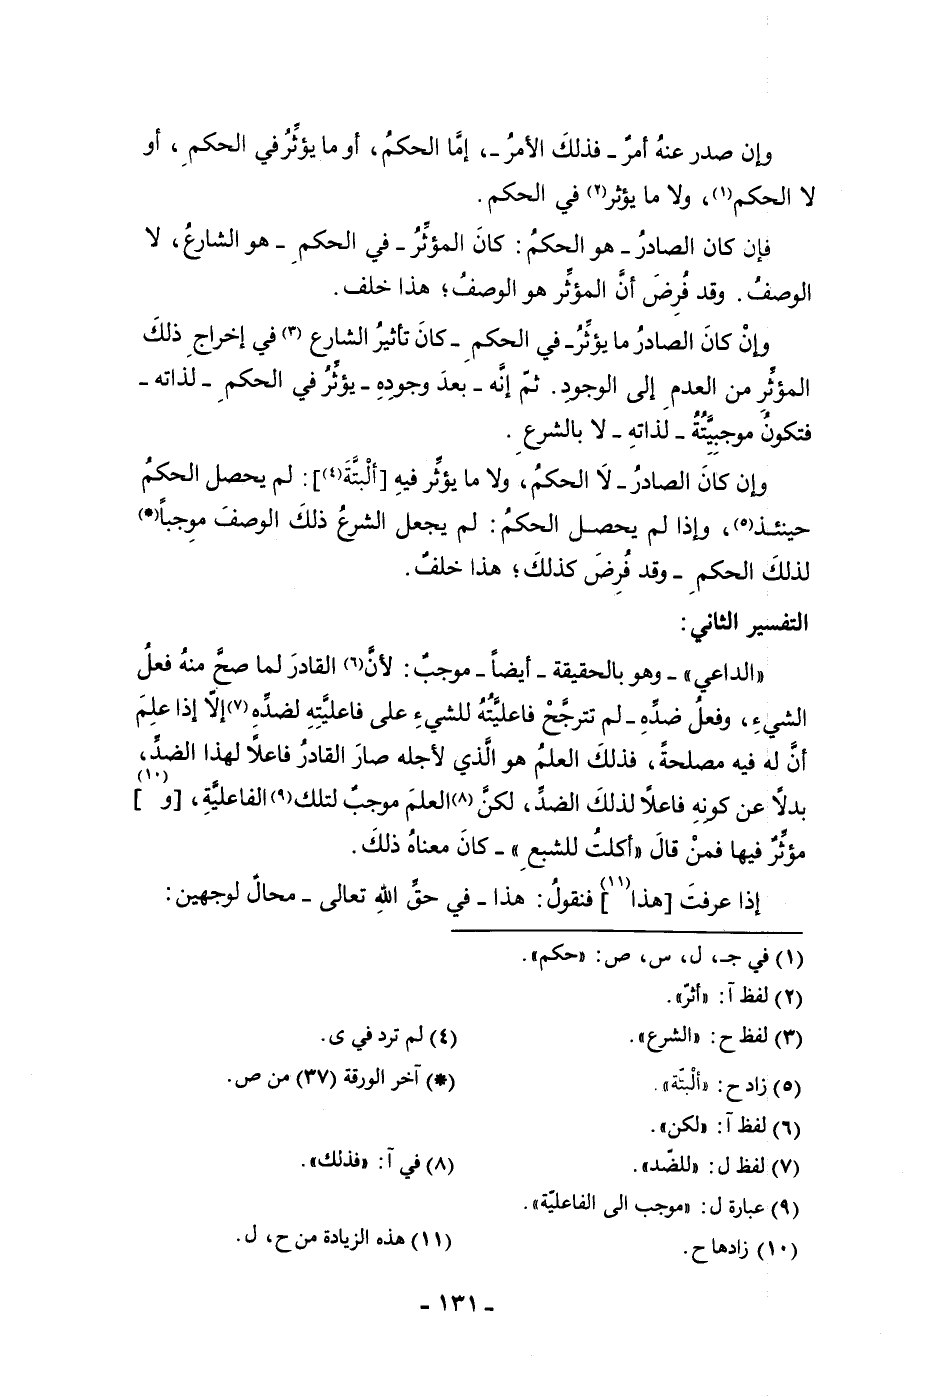 وإن صدر عنهُ أمرٌ ـ فذلكَ الأمرُ ـ، إمَّا الحكمُ، أو ما يؤثِّرُ في الحكمِ، أو
لا الحكم(١)، ولا ما يؤثر(٢) في الحكم.
فإن كان الصادرُ ـ هو الحكمُ: كانَ المؤثِّرُ ـ في الحكمِ ـ هو الشارعُ، لا
الوصفُ. وقد فُرِضَ أنَّ المؤثِّر هو الوصفُ؛ هذا خلف.
وإنْ كانَ الصادرُ ما يؤثِّرُ ـ في الحكمِ ـ كانَ تأثيرُ الشارع (٣) في إخراجِ ذلكَ
المؤثِّرِ من العدمِ إلى الوجودِ. ثمّ إنَّه ـ بعدَ وجودِهِ ـ يؤثِّرُ في الحكمِ ـ لذاته ـ
فتكونُ موجبيَّتُهُ ـ لذاتهِ ـ لا بالشرعِ.
وإن كانَ الصادرُ ـ لَا الحكمُ، ولا ما يؤثِّر فيهِ [ألْبتَّةَ(٤)]: لم يحصل الحكمُ
حينئذ(٥)، وإذا لم يحصل الحكمُ: لم يجعل الشرعُ ذلكَ الوصفَ موجباً(*)
لذلكَ الحكمِ ـ وقد فُرِضَ كذلكَ؛ هذا خلفٌ.
التفسير الثاني:
«الداعي» ـ وهو بالحقيقة ـ أيضاً ـ موجبٌ: لأنَّ(٦) القادرَ لما صحَّ منهُ فعلُ
الشيءِ، وفعلُ ضدِّهِ ـ لم تترجَّحْ فاعليَّتُهُ للشيءِ على فاعليَّتِهِ لضدِّهِ(٧) إلّا إذا علِمَ
أنَّ له فيه مصلحةً، فذلكَ العلمُ هو الَّذي لأجله صارَ القادرُ فاعلًا لهذا الضدِّ،
بدلًا عن كونِهِ فاعلًا لذلكَ الضدِّ، لكنَّ (٨) العلمَ موجبٌ لتلك(٩) الفاعليَّةِ، [و(١٠)]
مؤثِّرٌ فيها فمنْ قالَ «أكلتُ للشبعِ» ـ كانَ معناهُ ذلكَ.
إذا عرفتَ [هذا(١١)] فنقولُ: هذا ـ في حقِّ اللهِ تعالى ـ محالٌ لوجهين:
(١) في جـ، ل، س، ص: «حكم».
(٢) لفظ آ: «أثرّ».
(٣) لفظ ح: «الشرع». (٤) لم ترد في ى.
(٥) زاد ح: «ألْبتّة». (*) آخر الورقة (٣٧) من ص.
(٦) لفظ آ: «لكن».
(٧) لفظ ل: «للضّد». (٨) في آ: «فذلك».
(٩) عبارة ل: «موجب الى الفاعليّة».
(١٠) زادها ح. (١١) هذه الزيادة من ح، ل.
ـ ١٣١ ـ